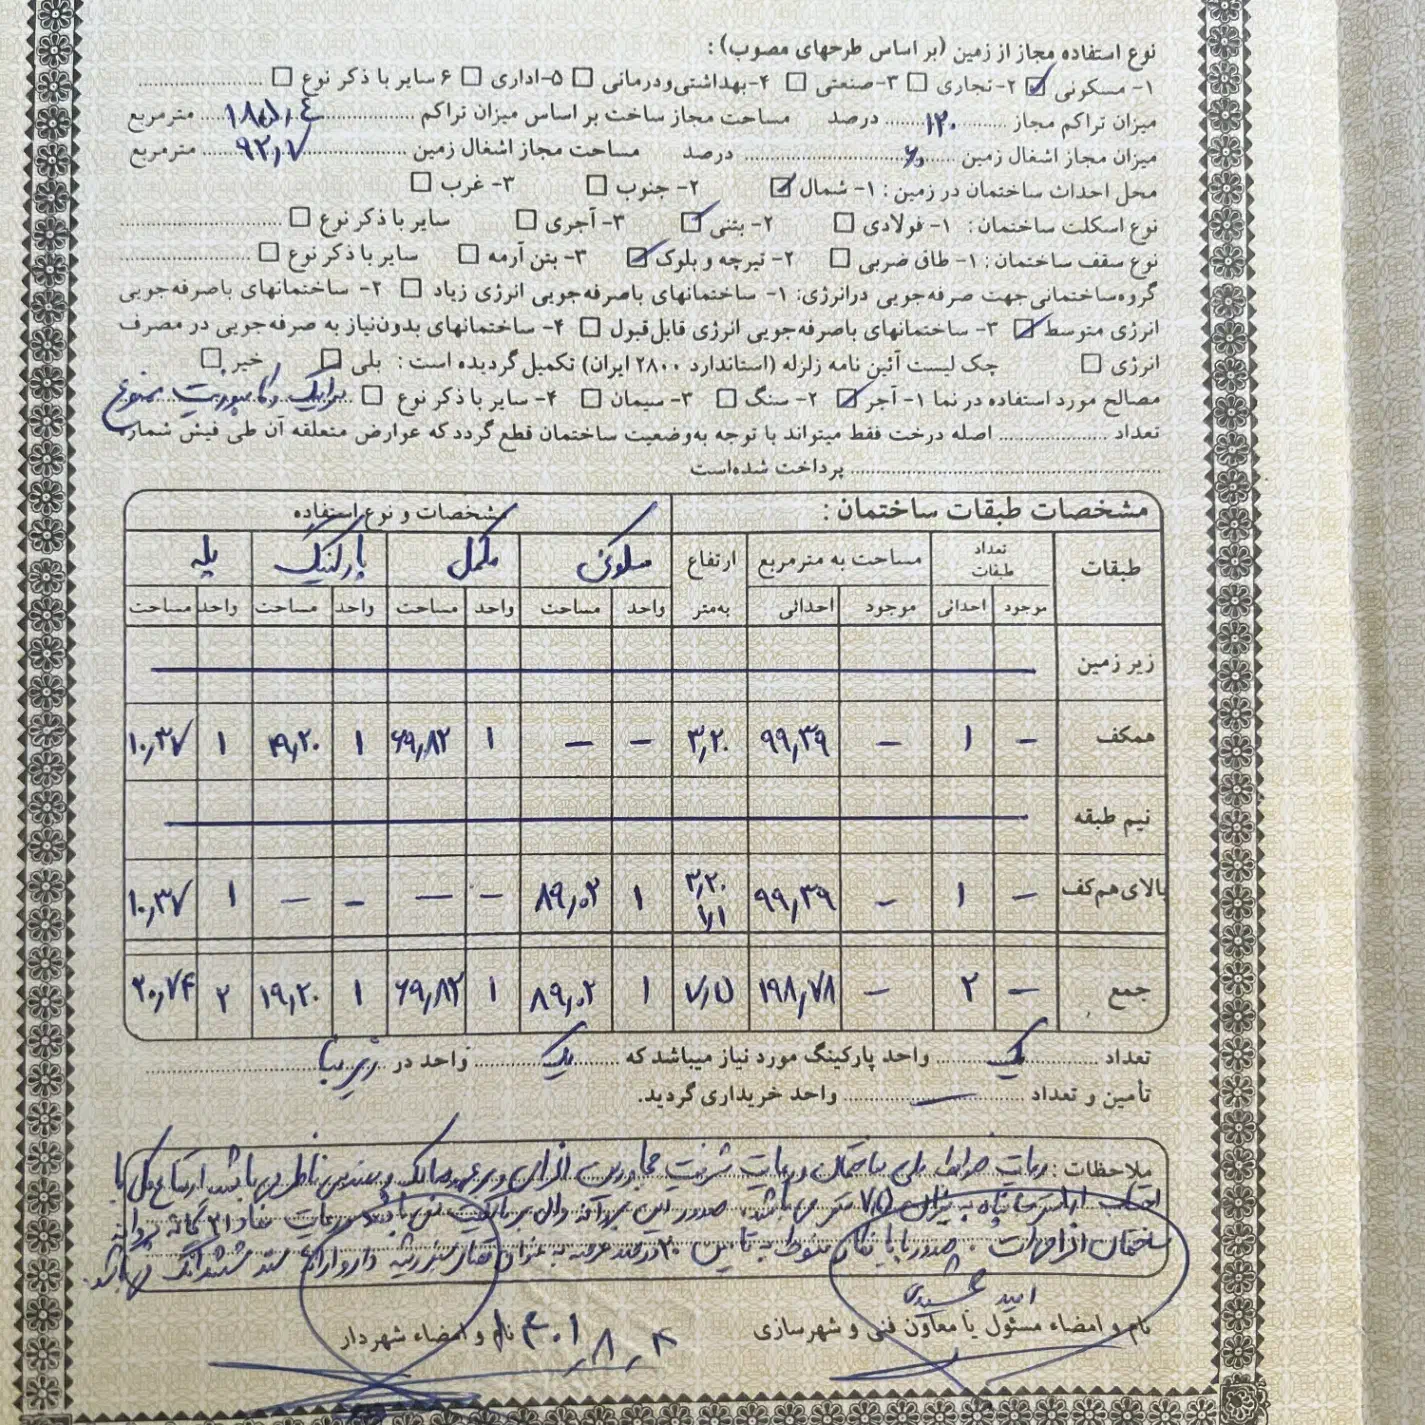 نوع استفاده مجاز از زمین (بر اساس طرحهای مصوب):
۱- مسکونی ☑ ۲- تجاری ☐ ۳- صنعتی ☐ ۴- بهداشتی ودرمانی ☐ ۵- اداری ☐ ۶ سایر با ذکر نوع ☐
میزان تراکم مجاز ۱۲۰ درصد مساحت مجاز ساخت بر اساس میزان تراکم ۱۸۵٫۴ مترمربع
میزان مجاز اشغال زمین ۶۰ درصد مساحت مجاز اشغال زمین ۹۲٫۷ مترمربع
محل احداث ساختمان در زمین: ۱- شمال ☑ ۲- جنوب ☐ ۳- غرب ☐
نوع اسکلت ساختمان: ۱- فولادی ☐ ۲- بتنی ☑ ۳- آجری ☐ سایر با ذکر نوع ☐
نوع سقف ساختمان: ۱- طاق ضربی ☐ ۲- تیرچه و بلوک ☑ ۳- بتن آرمه ☐ سایر با ذکر نوع ☐
گروه ساختمانی جهت صرفه جویی در انرژی: ۱- ساختمانهای باصرفه جویی انرژی زیاد ☐ ۲- ساختمانهای باصرفه جویی
انرژی متوسط ☑ ۳- ساختمانهای باصرفه جویی انرژی قابل قبول ☐ ۴- ساختمانهای بدون نیاز به صرفه جویی در مصرف
انرژی ☐ چک لیست آئین نامه زلزله (استاندارد ۲۸۰۰ ایران) تکمیل گردیده است: بلی ☐ خیر ☐
مصالح مورد استفاده در نما ۱- آجر ☑ ۲- سنگ ☐ ۳- سیمان ☐ ۴- سایر با ذکر نوع ☐ سرامیک و کامپوزیت ممنوع
تعداد اصله درخت فقط میتواند با توجه به وضعیت ساختمان قطع گردد که عوارض متعلقه آن طی فیش شماره
پرداخت شده است
مشخصات طبقات ساختمان: مشخصات و نوع استفاده
طبقات تعداد طبقات مساحت به مترمربع ارتفاع مسکونی مکمل پارکینگ پله
موجود احداثی موجود احداثی به متر واحد مساحت واحد مساحت واحد مساحت واحد مساحت
زیر زمین
همکف - ۱ - ۹۹٫۳۹ ۳٫۲۰ - - ۱ ۶۹٫۸۲ ۱ ۱۹٫۲۰ ۱ ۱۰٫۳۷
نیم طبقه
بالای هم کف - ۱ - ۹۹٫۳۹ ۳٫۲۰ ۱٫۱ ۱ ۸۹٫۰۲ - - - - ۱ ۱۰٫۳۷
جمع - ۲ - ۱۹۸٫۷۸ ۷٫۵ ۱ ۸۹٫۰۲ ۱ ۶۹٫۸۲ ۱ ۱۹٫۲۰ ۲ ۲۰٫۷۴
تعداد یک واحد پارکینگ مورد نیاز میباشد که یک واحد در زیربنا
تأمین و تعداد — واحد خریداری گردید.
ملاحظات: رعایت ضوابط ملی ساختمان و رعایت مجاورین الزامی و بر عهده مالک و مهندس ناظر می باشد ارتفاع کل با
به میزان ۷٫۵ متر می باشد. صدور این پروانه دال بر مالکیت نمی باشد رعایت مفاد ۲۱ گانه پروانه
ساختمان الزامیست. صدور پایانکار منوط به تامین ۲۰ درصد عرصه به عنوان فضای سبز و ارائه سند ششدانگ می باشد.
امید جمشیدی
نام و امضاء مسئول یا معاون فنی و شهرسازی نام و امضاء شهردار
۱۴۰۱٫۸٫۴